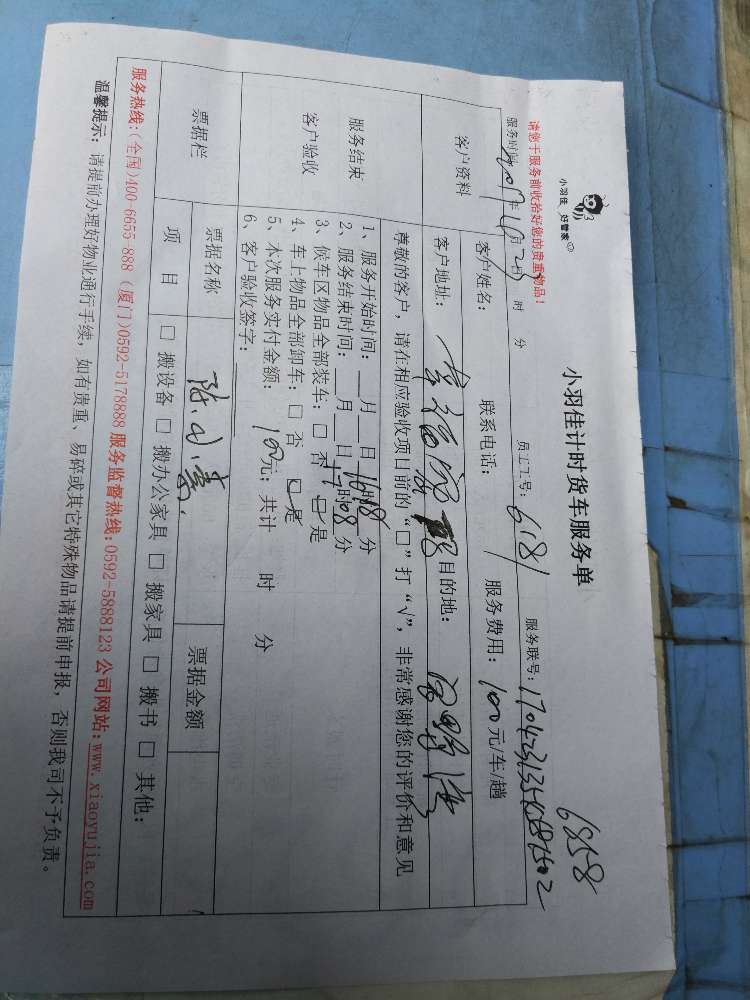 6858
小羽佳 好管家
小羽佳计时货车服务单
请您于服务前收拾好您的贵重物品!
服务时间: 2017年4月23日 时 分 员工工号: 6181 服务联号:
客户资料 客户姓名: 联系电话: 服务费用: 100元/车/趟
客户地址: 目的地:
服务结束
客户验收
尊敬的客户,请在相应验收项目前的“□”打“√”,非常感谢您的评价和意见
1、服务开始时间:__月__日16时18分
2、服务结束时间:__月__日17时08分
3、候车区物品全部装车:□ 否 □ 是
4、车上物品全部卸车:□ 否 □ 是
5、本次服务实付金额:100元;共计 时 分
6、客户验收签字:
票据栏 票据名称 票据金额
项 目 □ 搬设备 □ 搬办公家具 □ 搬家具 □ 搬书 □ 其他:
服务热线:(全国)400-6655-888 (厦门)0592-5178888 服务监督热线:0592-5888123 公司网站:www.xiaoyujia.com
温馨提示: 请提前办理好物业通行手续,如有贵重、易碎或其它特殊物品请提前申报,否则我司不予负责。